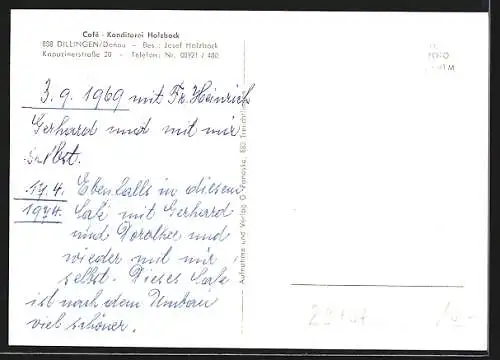 Café - Konditorei Holzbock
888 DILLINGEN/Donau - Bes.: Josef Holzbock
Kapuzinerstraße 20 - Telefon: Nr. 09071 / 480
3. 9. 1969 mit Fr. Heinrich
Gerhard und mit mir
selbst.
17. 4. Ebenfalls in diesem
1974. Café mit Gerhard
und Dorothee und
wieder mit mir
selbst. Dieses Cafe
ist nach dem Umbau
viel schöner.
Aufnahme und Verlag G.